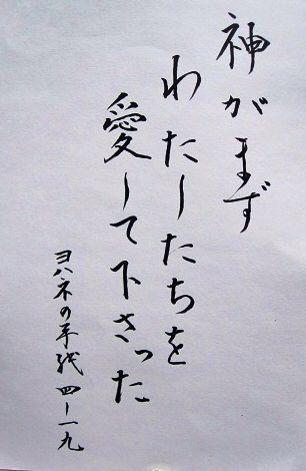 神がまず
わたしたちを
愛して下さった
ヨハネの手紙 四-一九